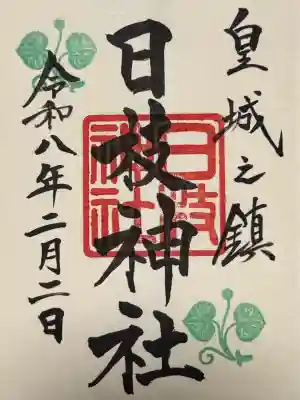 皇城之鎮
日枝神社
日枝
神社
令和八年二月二日